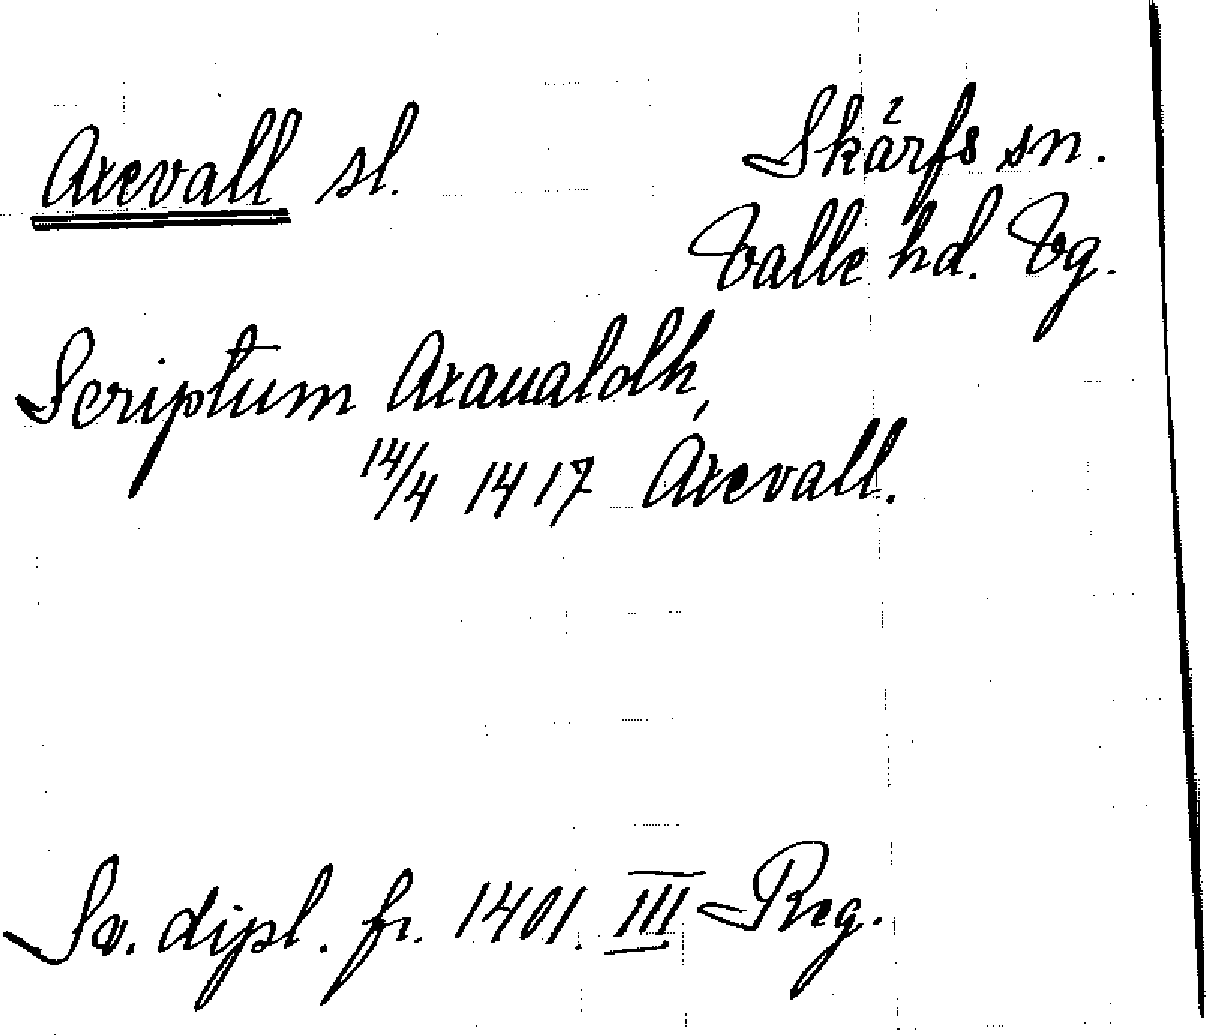 Axevall sl.
Skärfs sn.
Valle hd. Vg.
Scriptum Axaualdh,
14/4 1417 Axevall.
Sv. dipl. fr. 1401. III Reg.